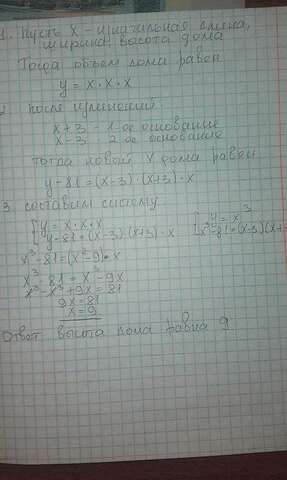 1. Пусть x - изначальная длина,
ширина, высота дома
Тогда объем дома равен
y = x · x · x
2. после изменений
x + 3 - 1-ое основание
x - 3 2 ое основание
тогда новый V дома равен
y - 81 = (x - 3) · (x + 3) · x
3. составим систему
{ y = x · x · x
y - 81 = (x - 3) · (x + 3) · x
{ y = x³
x³ - 81 = (x - 3)(x +
x³ - 81 = (x² - 9) · x
x³ - 81 = x³ - 9x
x³ - x³ + 9x = 81
9x = 81
x = 9
Ответ высота дома равна 9